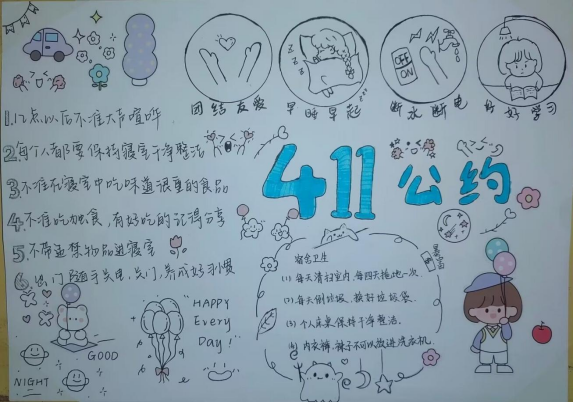 团结友爱
早睡早起
断水断电
好好学习
OFF
ON
1.12点以后不准大声喧哗
2.每个人都要保持寝室干净整洁
3.不准在寝室中吃味道很重的食品
4.不准吃独食，有好吃的记得分享
5.不带违禁物品进寝室
6.出门随手关电，关门，养成好习惯
411公约
宿舍卫生
(1)每天清扫室内，每四天拖地一次.
(2)每天倒垃圾，换好垃圾袋.
(3)个人床桌保持干净整洁.
(4)内衣裤、袜子不可以放进洗衣机.
HAPPY
Every
Day!
GOOD
NIGHT